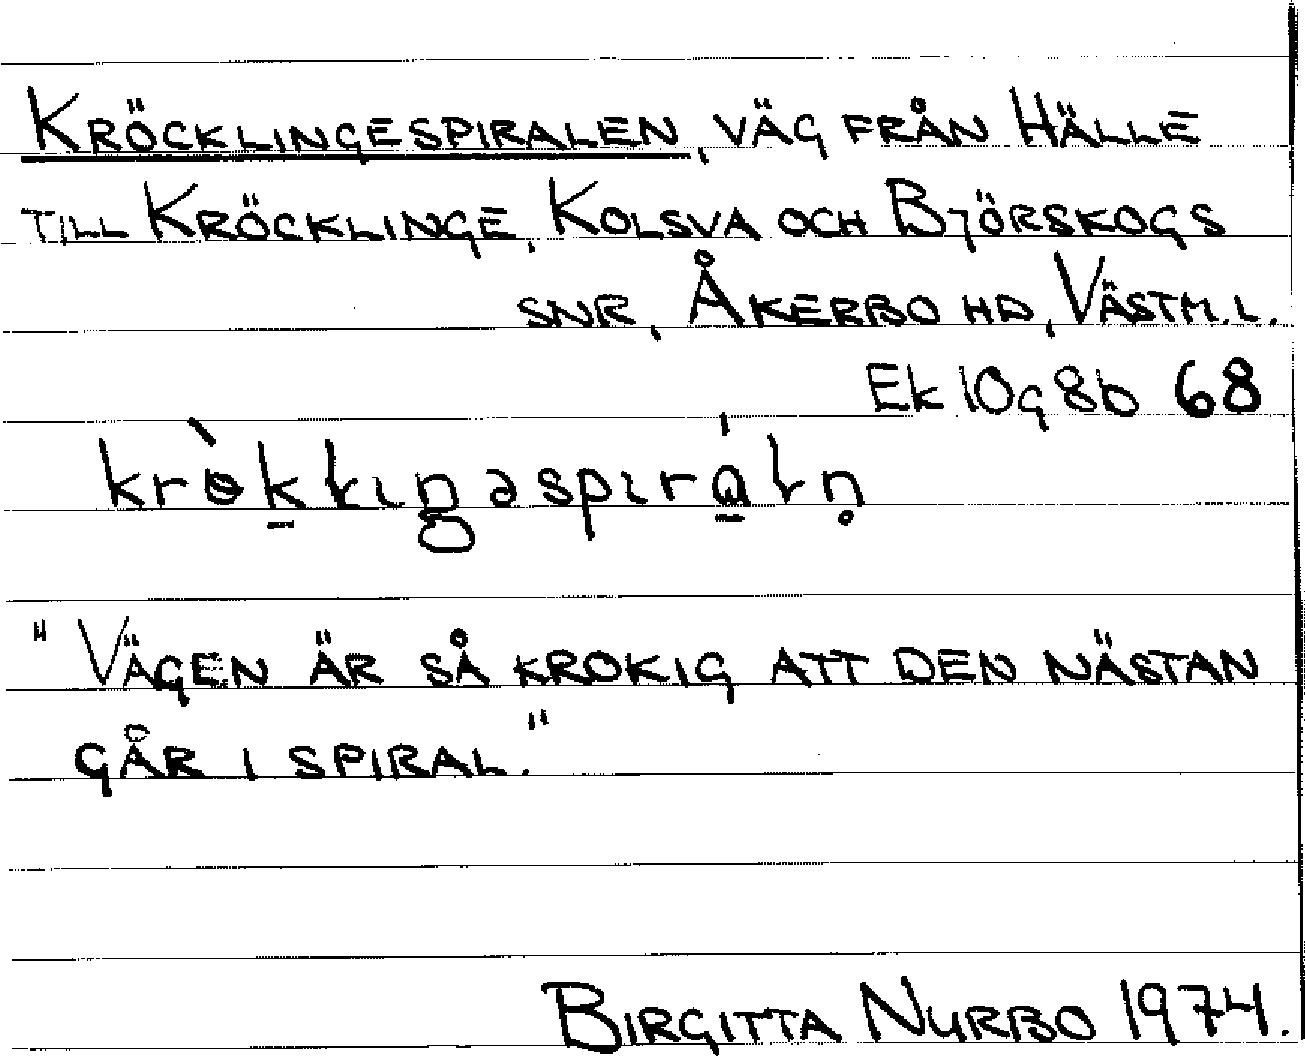 KRÖCKLINGESPIRALEN, VÄG FRÅN HÄLLE
TILL KRÖCKLINGE, KOLSVA OCH BJÖRSKOGS
SNR, ÅKERBO HD, VÄSTM.L.
Ek 10g 8b 68
"VÄGEN ÄR SÅ KROKIG ATT DEN NÄSTAN
GÅR I SPIRAL."
BIRGITTA NYRBO 1974.